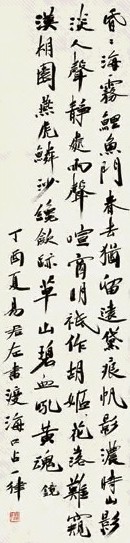 昏昏海霧鯉魚門春去猶留遠黛痕帆影濃時山影
淡人聲靜處雨聲喧宵明祗作胡姬花落難窺
漢相園燕虎鱗沙纔斂跡草山碧血吼黃魂 鏡
丁酉夏易君左書渡海口占一律